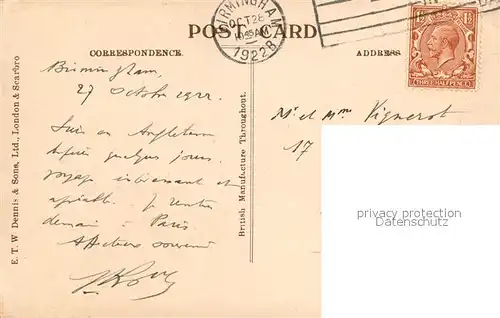 POST CARD
BIRMINGHAM
OCT 28
1922
CORRESPONDENCE.
ADDRESS
THREE HALFPENCE
Birmingham,
27 Octobre 1922.
Suis en Angleterre
depuis quelques jours.
voyage intéressant et
agréable. Je rentre
demain à Paris
Affectueux souvenir
Mr et Mme Vignerot
17
E. T. W. Dennis & Sons, Ltd., London & Scarbro
British Manufacture Throughout.
privacy protection
Datenschutz